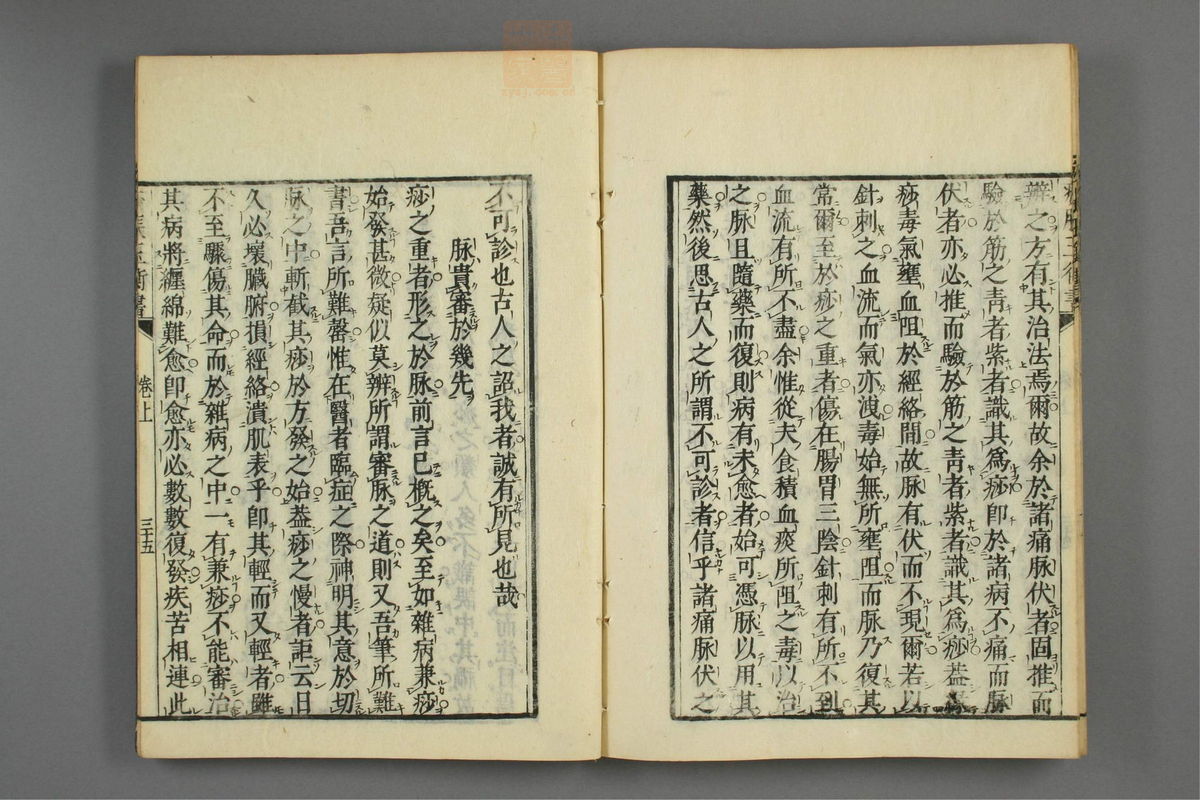 辨之方有其治法焉爾故余於諸痛脉伏者固推而
驗於筋之靑者紫者識其爲痧卽於諸病不痛而脉
伏者亦必推而驗於筋之靑者紫者識其爲痧葢
痧毒氣壅血阻於經絡間故脉有伏而不現爾若以
針刺之血流而氣亦洩毒始無所壅阻而脉乃復其
常爾至於痧之重者傷在腸胃三陰針刺有所不到
血流有所不盡余惟從夫食積血痰所阻之毒以治
之脉且隨藥而復則病有未愈者始可憑脉以用其
藥然後思古人之所謂不可診者信乎諸痛脉伏之
不可診也古人之詔我者誠有所見也哉
脉貴審於幾先
痧之重者形之於脉前言已概之矣至如雜病兼痧
始發甚微疑似莫辨所謂審脉之道則又吾筆所難
書吾言所難罄惟在醫者臨症之際神明其意於切
脉之中斬截其痧於方發之始葢痧之慢者詎云日
久必壞臟腑損經絡潰肌表乎卽其輕而又輕者雖
不至驟傷其命而於雜病之中一有兼痧不能審治
其病將纏綿難愈卽愈亦必數數復發疾苦相連此
卷上
三十五